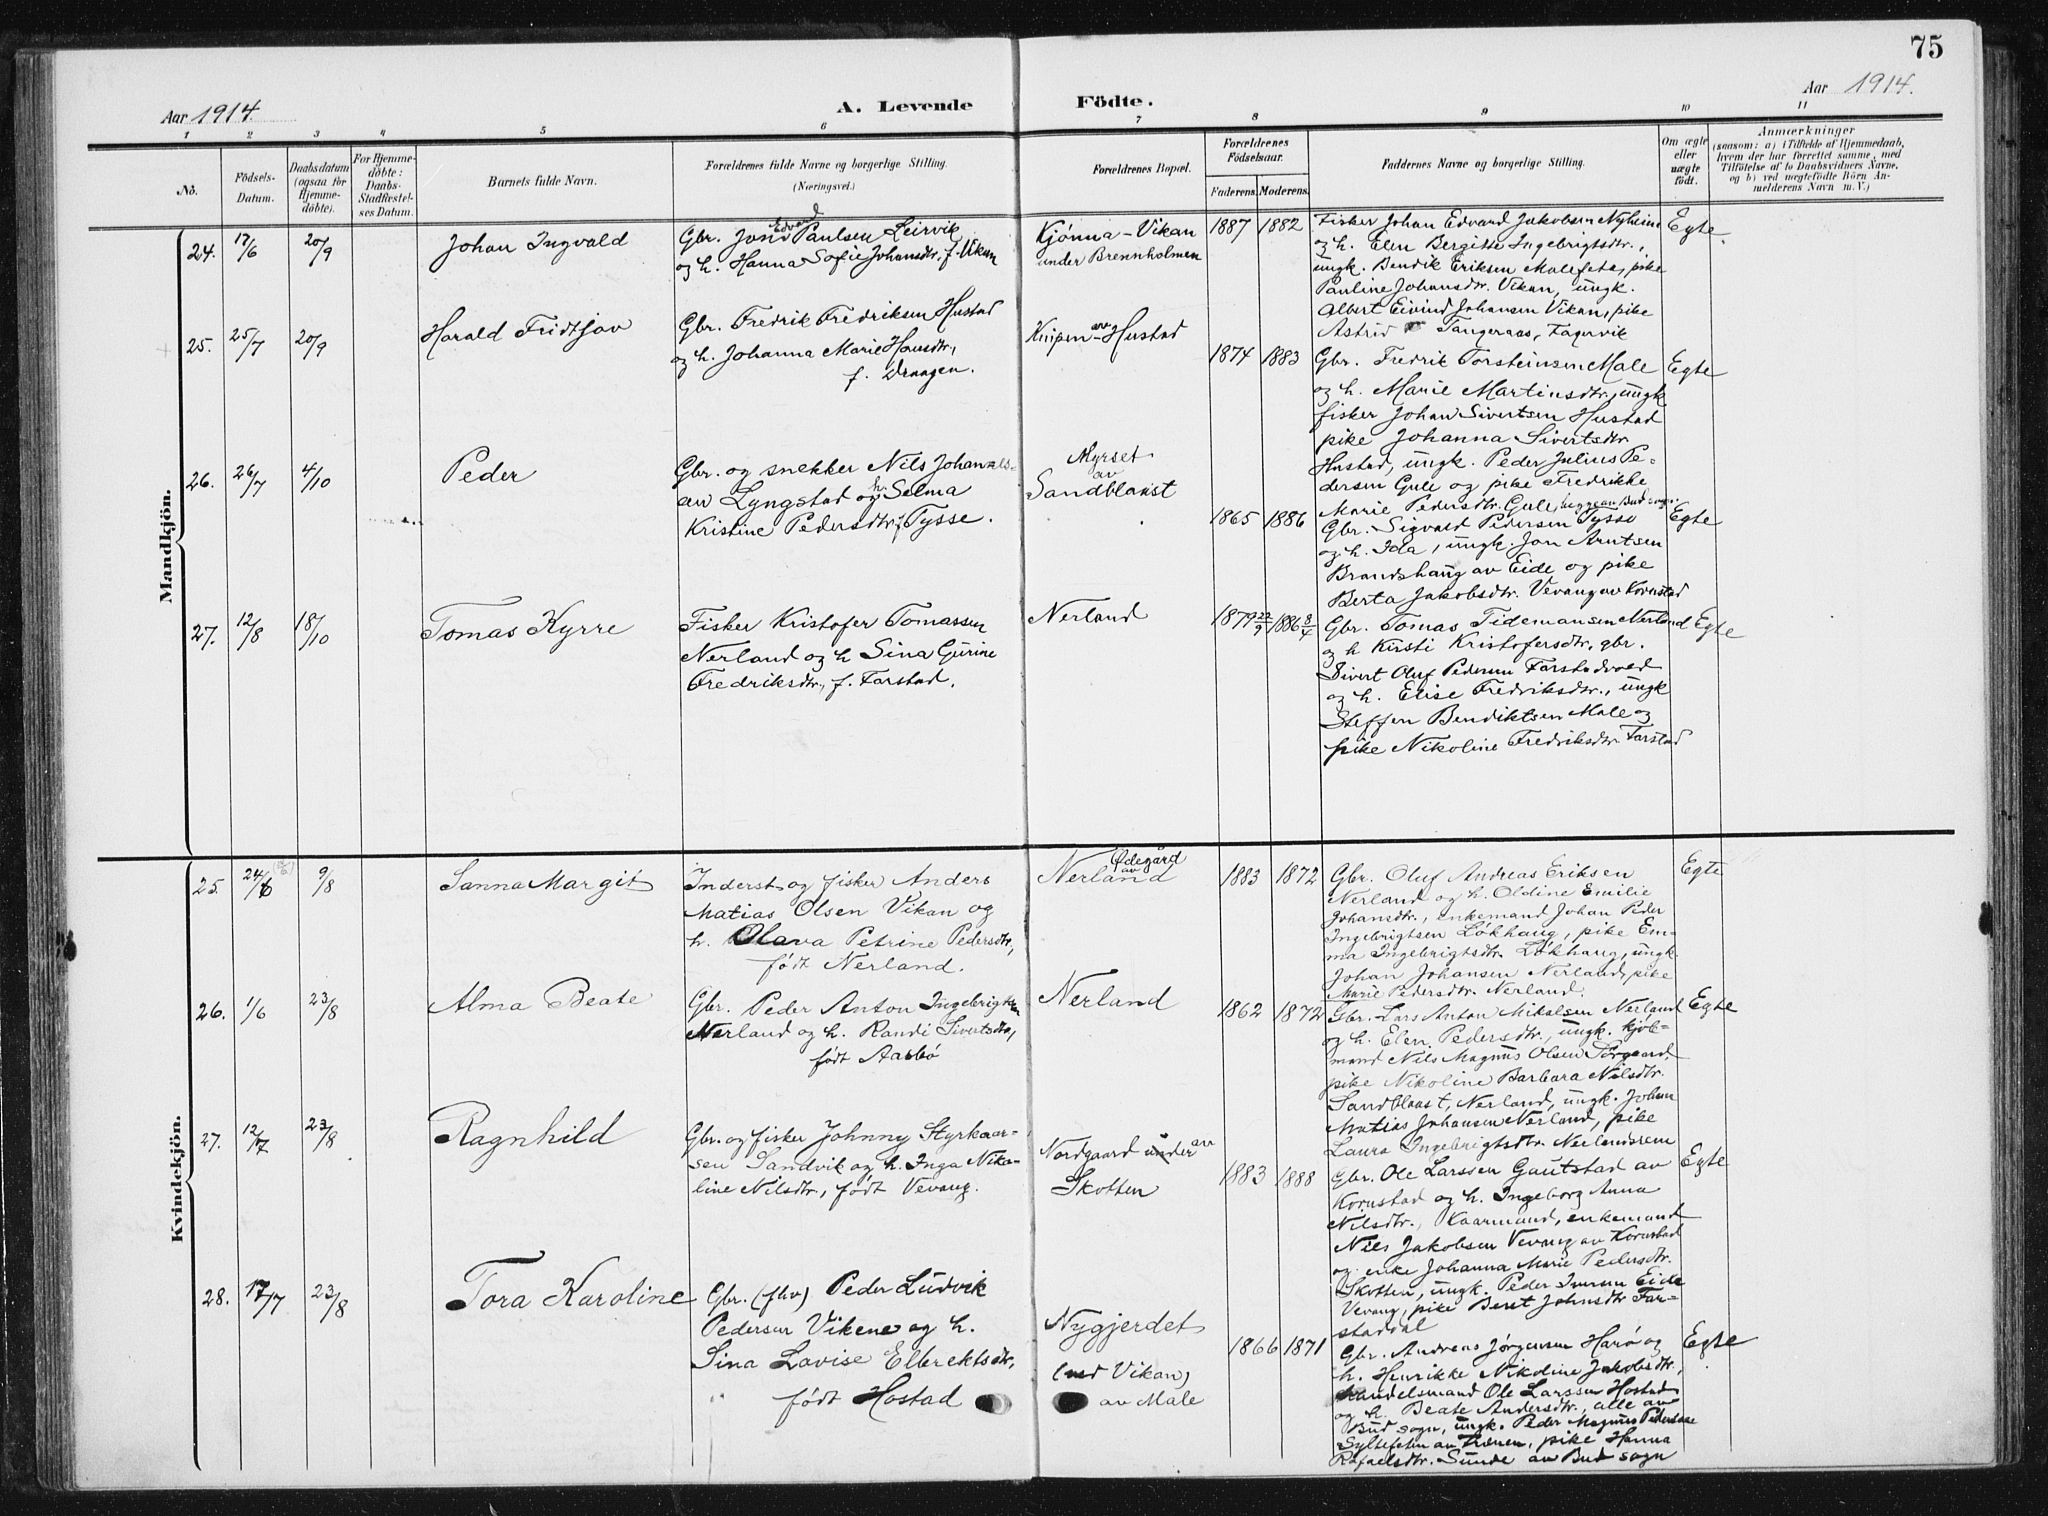 75
Aar 1914.
A. Levende Födte.
Aar 1914.
1 2 3 4 5 6 7 8 9 10 11
No.
Födsels-Datum.
Daabsdatum (ogsaa for Hjemme-döbte).
For Hjemme-döbte: Daabs-Stadfæstel-ses Datum.
Barnets fulde Navn.
Forældrenes fulde Navne og borgerlige Stilling. (Næringsvei.)
Forældrenes Bopæl.
Forældrenes Födselsaar.
Faderens. Moderens.
Faddernes Navne og borgerlige Stilling.
Om ægte eller uægte födt.
Anmærkninger
(saasom: a) i Tilfælde af Hjemmedaab,
hvem der har forrettet samme, med
Tilföielse af to Daabsvidners Navne.
og b) ved uægtefödte Börn An-
melderens Navn m. V.)
Mandkjön.
24. 17/6 20/9 Johan Ingvald
Gbr. Jons Edvard Paulsen Leirvik
og h. Hanna Sofie Johansdtr. f. Vikan
Kjønna-Vikan
under Brennholmen
1887 1882
Fisker Johan Edvard Jakobsen Nyheim
og h. Elen Bergitte Ingebrigtsdtr.,
ungk. Bendik Eriksen Malefeta, pike
Pauline Johansdtr. Vikan, ungk.
Albert Eivind Johansen Vikan, pike
Astrid Tangeraas, Fagervik
Egte.
25. 25/7 20/9 Harald Fridtjov
Gbr. Fredrik Fredriksen Hustad
og h. Johanna Marie Hansdtr,
f. Draagen.
Knipen av Hustad
1874 1883
Gbr. Fredrik Torsteinsen Male
og h. Marie Martinsdtr, ungk
fisker Johan Sivertsen Hustad
pike Johanna Sivertsdtr
Hustad, ungk. Peder Julius Pe-
dersen Gule og pike Fredrikke
Marie Pedersdtr. Gule, begge av Bud sogn.
Egte
26. 26/7 4/10 Peder
Gbr. og snekker Nils Johannes-
sen Lyngstad og h. Selma
Kristine Pedersdtr. f. Tysse.
Myrset
av
Sandblaast
1865 1886
Gbr. Sigvald Pedersen Tysse
og h. Ida, ungk. Jon Arntsen
Brandshaug av Eide og pike
Berta Jakobsdtr. Vevang av Kornstad
Egte
27. 12/8 18/10 Tomas Kyrre
Fisker Kristofer Tomassen
Nerland og h Sina Gurine
Fredriksdtr, f. Farstad.
Nerland
1879 22/9 1886 8/4
Gbr. Tomas Tidemansen Nerland
og h Kirsti Kristofersdtr, gbr.
Sivert Oluf Pedersen Farstadvold
og h. Elise Fredriksdtr., ungk
Steffen Bendiktsen Male og
pike Nikoline Fredriksdtr. Farstad
Egte
Kvindekjön.
25. 24/6 9/8 Sanna Margit
Inderst og fisker Anders
Matias Olsen Vikan og
h. Olava Petrine Pedersdtr,
født Nerland.
Ødegård
av
Nerland
1883 1872
Gbr. Oluf Andreas Eriksen
Nerland og h. Oldine Emilie
Johansdtr., enkemand Johan Peder
Ingebrigtsen Løkhaug, pike Em-
ma Ingebrigtsdtr. Løkhaug, ungk.
Johan Johansen Nerland, pike
Marie Pedersdtr. Nerland.
Egte
26. 1/6 23/8 Alma Beate
Gbr. Peder Anton Ingebrigtsen
Nerland og h. Randi Sivertsdtr,
født Aasbø
Nerland
1862 1872
Gbr. Lars Anton Mikalsen Nerland
og h. Elen Pedersdtr., ungk. kjøb-
mand Nils Magnus Olsen Sørgaard,
pike Nikoline Barbara Nilsdtr.
Sandblaast, Nerland, ungk. Johan
Matias Johansen Nerland, pike
Laura Ingebrigtsdtr. Nerlandsrem
Egte
27. 12/7 23/8 Ragnhild
Gbr. og fisker Johnny Styrkaar-
sen Sandvik og h. Inga Niko-
line Nilsdtr, født Vevang.
Nordgaard under av
Skotten
1883 1888
Gbr. Ole Larssen Gautstad av
Kornstad og h. Ingeborg Anna
Nilsdtr., Kaarmand, enkemand
Nils Jakobsen Vevang av Kornstad
og enke Johanna Marie Pedersdtr.
Skotten, ungk. Peder Eide
Vevang, pike Beret Johnsdtr Far-
staddal
Egte
28. 17/7 23/8 Tora Karoline
Gbr. (fhv) Peder Ludvik
Pedersen Vikene og h.
Sina Lovise Elbrektsdtr,
født Hostad
Nygjerdet
(ved Vikan)
av Male
1866 1871
Gbr. Andreas Jørgensen Harø og
h. Henrikke Nikoline Jakobsdtr,
Handelsmand Ole Larssen Hostad
og h. Beate Andersdtr., alle av
Bud sogn, ungk. Peder Magnus Pedersen
Syltefeten av Trænen, pike Hanna
Rafaelsdtr. Sunde av Bud sogn
Egte